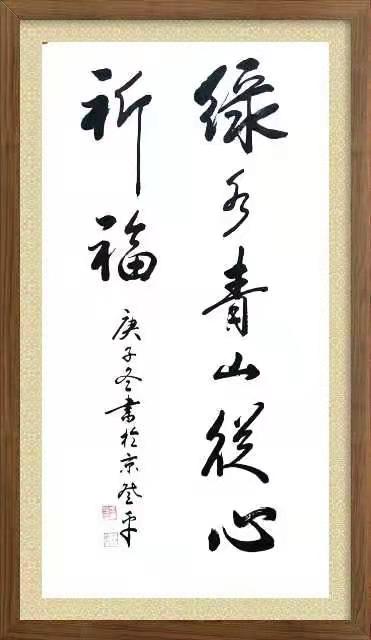 綠水青山從心
祈福
庚子冬書於京平